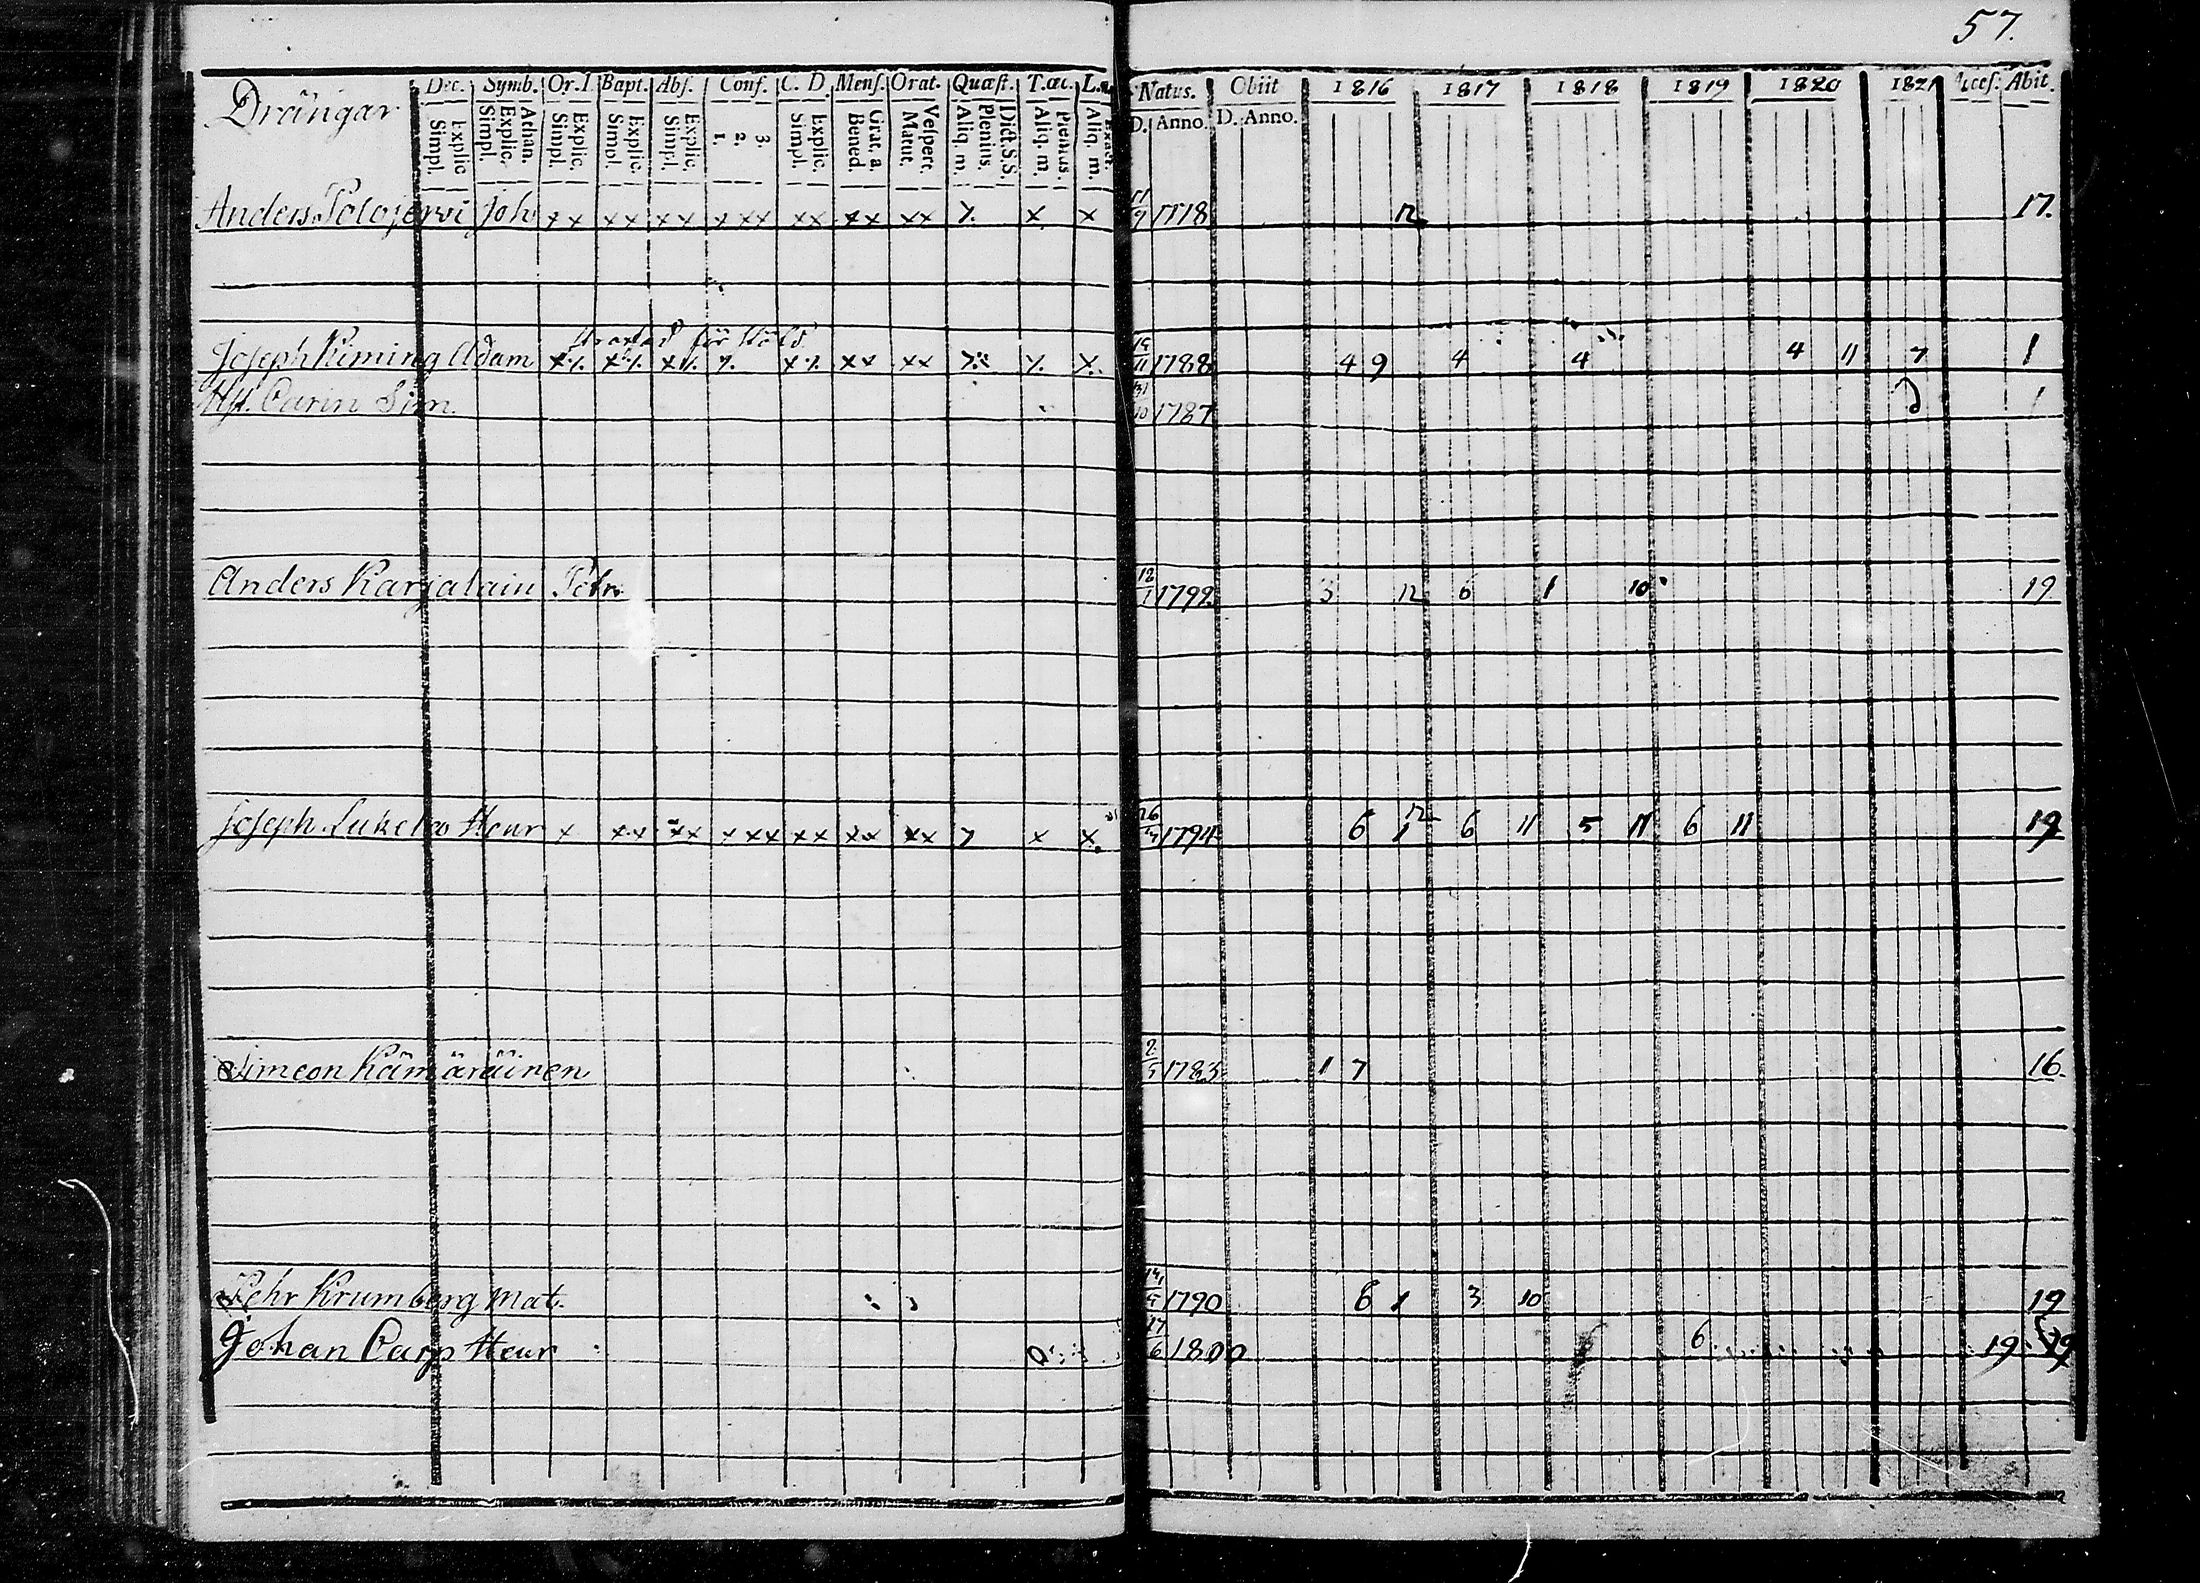 57.
Drängar Dec. Symb. Or.D. Bapt. Abſ. Conf. C. D. Menſ. Orat. Quæſt. T.œc. Natus. Obiit 1816 1817 1818 1819 1820 1821 Acceſ. Abit.
Explic. Simpl. Athan. Explic. Simpl. Explic. Simpl. Explic. Simpl. Explic. Simpl. 3. 2. 1. Explic. Simpl. Grat. a. Bened. Veſpert. Matut. Dict.S.S. Plenius. Aliq. m. Plenius. Aliq. m. Exact. Aliq. m. D. Anno. D. Anno.
Anders Polojervi Joh x x x x x x x xx xx xx xx x x 1778 12 17.
straffad för stöld
Joseph Kiming Adam 1788 4 9 4 4 4 11 7 1
Hſt. Carin Sim. 31/10 1787 1
Anders Karjalain Petr. 12/1 1792 3 12 6 1 10 19
Joseph Henr x xx xx x xx xx xx xx x x 26 1794 6 1 12 6 11 5 11 6 11 19
Simeon Kämäräinen 2/5 1783 1 7 16.
Pehr Krumberg Mat. 1790 6 1 3 10 19
Johan Carp Henr 17/6 1800 6 19 19